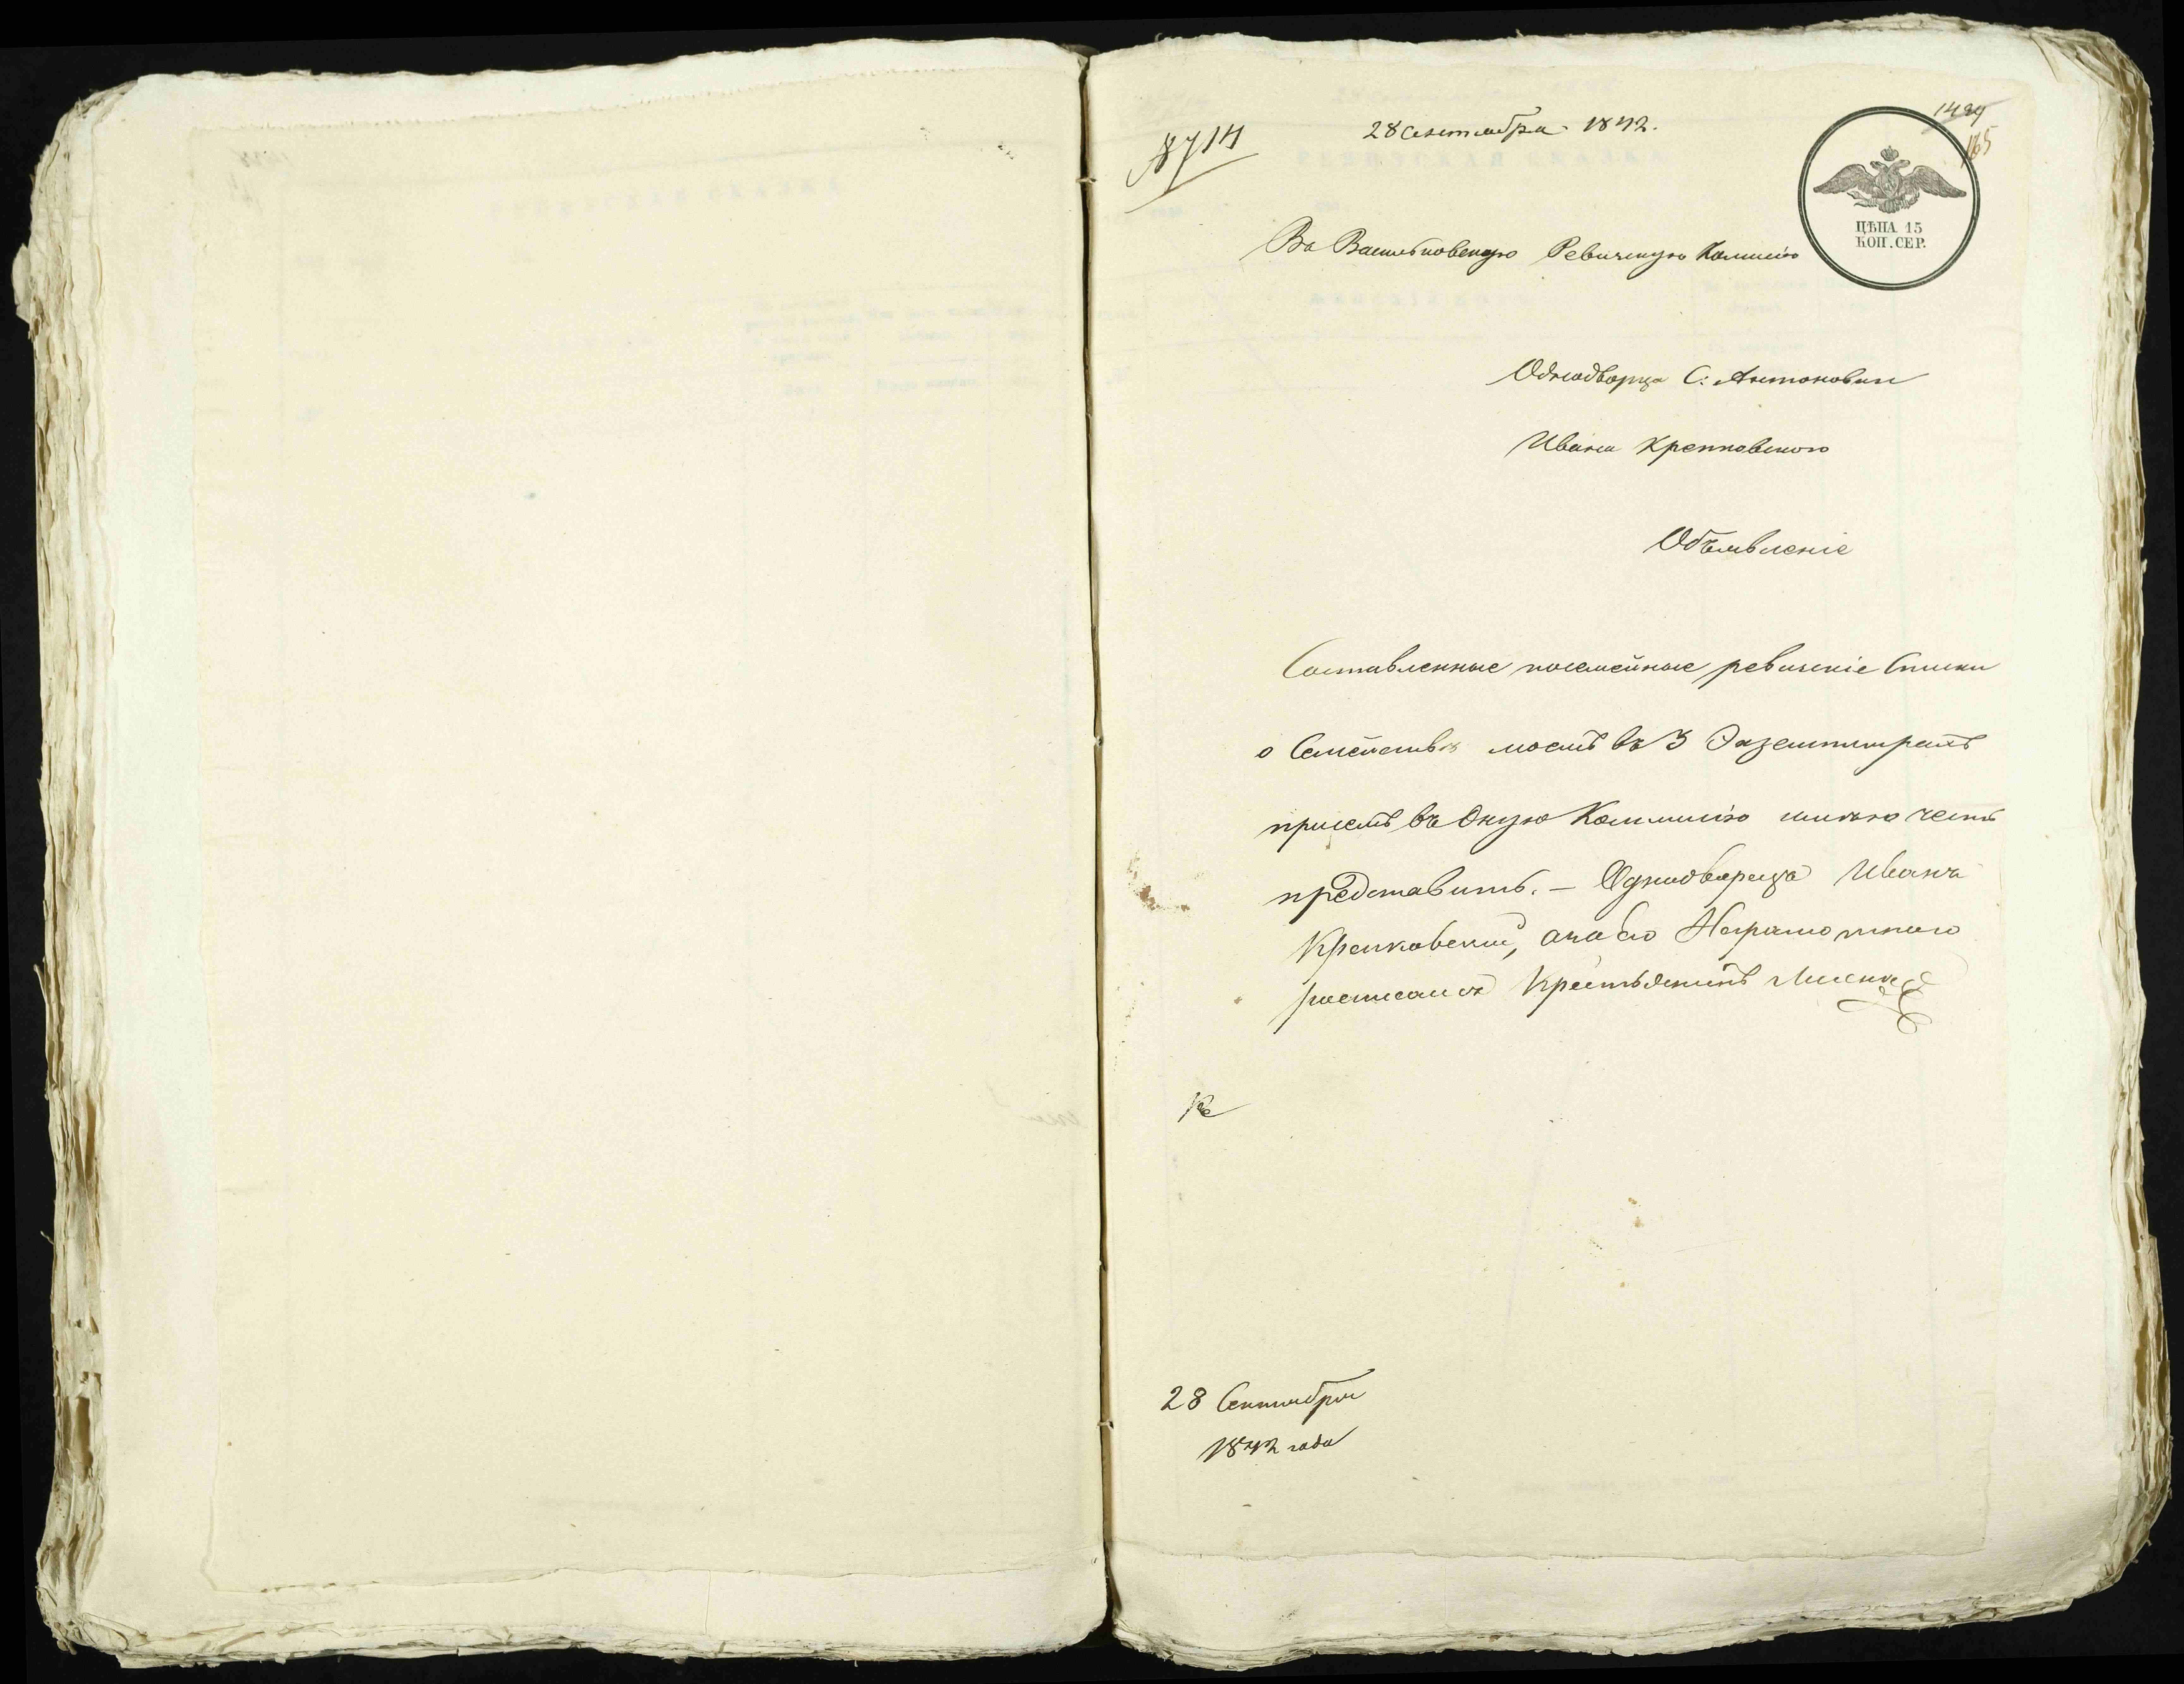 8714
28 Сентября 1842.
165
ЦѢНА 15
КОП. СЕР.
Въ Васильковскую Ревизскую Комисію
Однодворца С: Антоновки
Ивана Крепковского
Объявленіе
Составленные посемейные ревизскіе Списки
о Семействѣ моемъ въ 3 Экземплярахъ
при семъ въ Оную Коммисію имѣю честь
представить. — Однодворецъ Иванъ
Крепковский, а за его Неграмотного
росписался Крестьянинъ
28 Сентября
1842 года